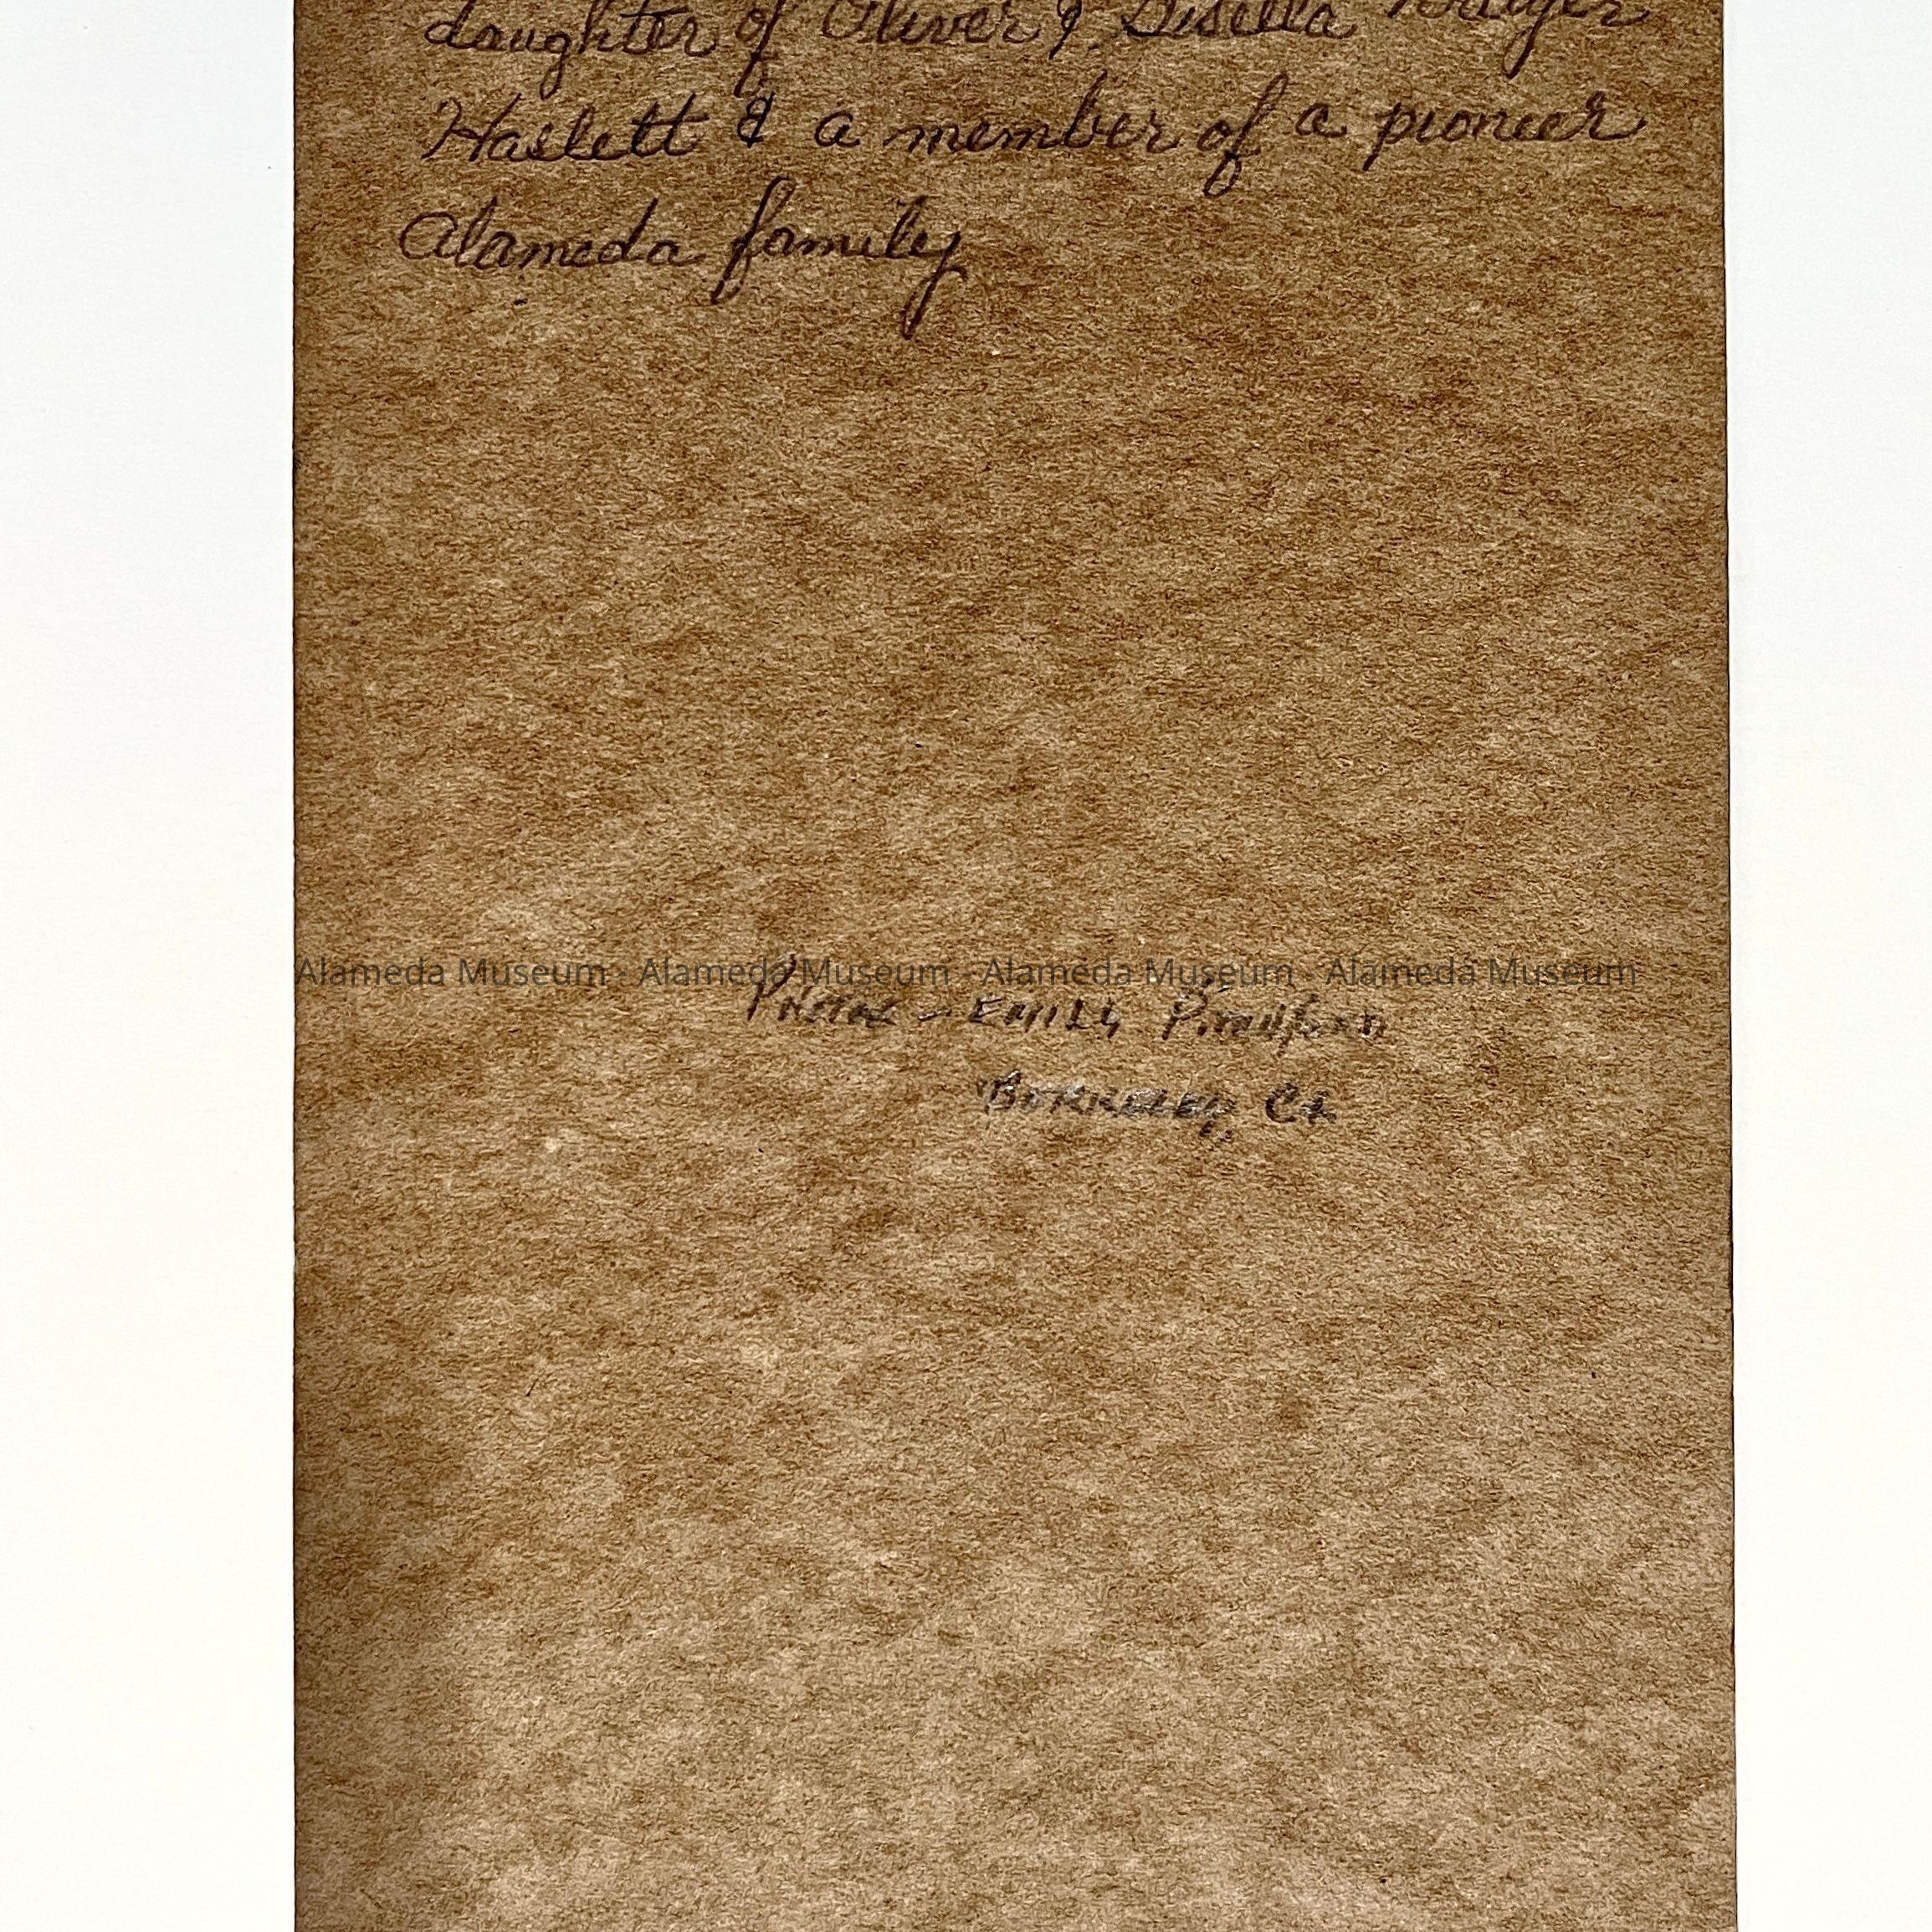 daughter of Oliver & Gisella Kruger
Haslett & a member of a pioneer
Alameda family
Alameda Museum - Alameda Museum - Alameda Museum - Alameda Museum
Photos - Emily
Berkeley, CA